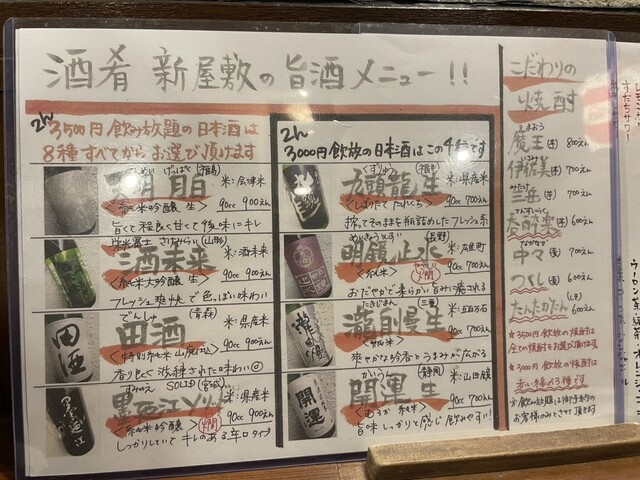 酒肴 新屋敷の旨酒メニュー!!
2h
3500円飲み放題の日本酒は
8種すべてからお選び頂けます
(福島)
月 脂
米:会津米
<純米吟醸 生>
90cc 900えん
旨くて程良く甘くて後味にキレ
栄光冨士 さけみらい(山形)
酒未来
米:酒未来
<純米大吟醸 生>
90cc 900えん
フレッシュ爽快で色っぽい味わい
でんしゅ (青森)
田酒
米:県産米
<特別純米 山廃>
90cc 900えん
香り良く洗練された味わい
すみのえ SOLID (宮城)
墨廼江ソリッド
米:県産米
<純米吟醸>
燗
90cc 900えん
しっかりしていてキレのある辛口タイプ
2h
3000円飲放の日本酒はこの4種です
くずりゅう (福井)
九頭龍 生
米:県産米
<しぼりたて たれくち>
90cc 700えん
搾ってそのままを瓶詰めしたフレッシュ系
めいきょうしすい (長野)
明鏡止水
<純米>
燗
90cc 700えん
おだやかで柔らかい旨みに癒される
たきじまん (三重)
瀧自慢 生
米:五百万石
<純米>
90cc 700えん
爽やかな吟香とうまみが広がる
かいうん (静岡)
開運 生
米:山田錦
<むろか 純米>
90cc 700えん
旨味しっかりと感じ飲みやすい!
こだわりの
焼酎
まおう
魔王(芋) 800えん
伊佐美(芋) 700えん
みたけ
三岳(芋) 700えん
呑酔楽(芋) 600えん
なかなか
中々(麦) 700えん
つくし(麦) 600えん
たんたかたん(しそ) 600えん
★3500円飲放の焼酎は
全ての焼酎をお選び頂けます
★3000円飲放の焼酎は
赤い線が3種です